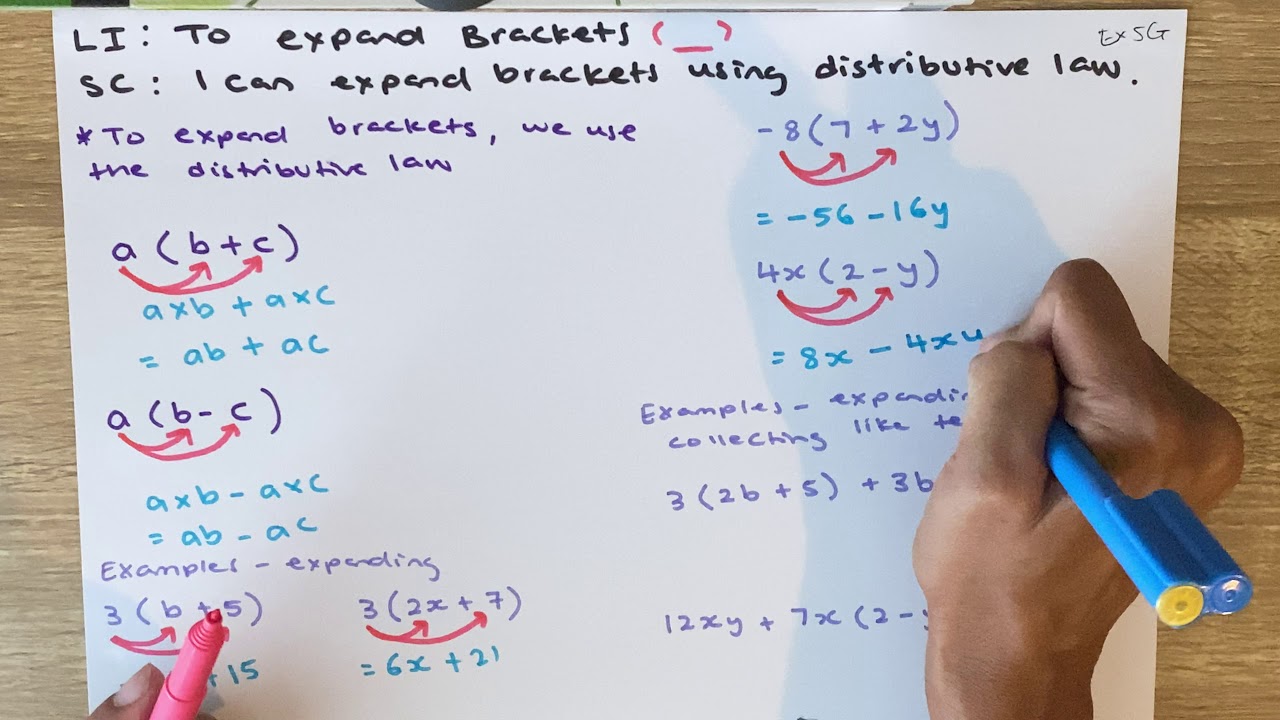 LI: To expand Brackets (_)
Ex5G
SC: I can expand brackets using distributive law.
*To expand brackets, we use
the distributive law
a (b+c)
axb + axc
= ab + ac
a (b- c)
axb - axc
= ab - ac
Examples - expanding
3 (b + 5)
+ 15
3 (2x + 7)
= 6x + 21
-8(7 + 2y)
= -56 - 16y
4x (2 - y)
= 8x - 4xy
Examples -
collecting like
3 (2b + 5) + 3b
12xy + 7x (2 -